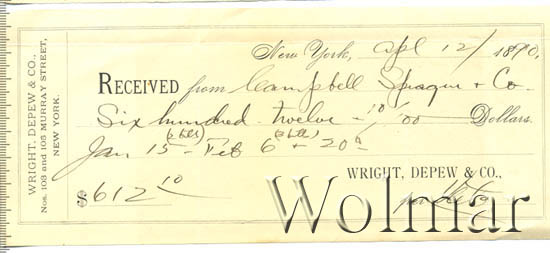 WRIGHT, DEPEW & CO.,
Nos. 103 and 105 MURRAY STREET,
NEW YORK.
New York, Apl 12/ 1890.
RECEIVED from Campbell Sprague & Co
Six hundred twelve - 10/00 Dollars.
Jan 15 - Feb 6 & 20
$612 10
WRIGHT, DEPEW & CO.,
Wolmar